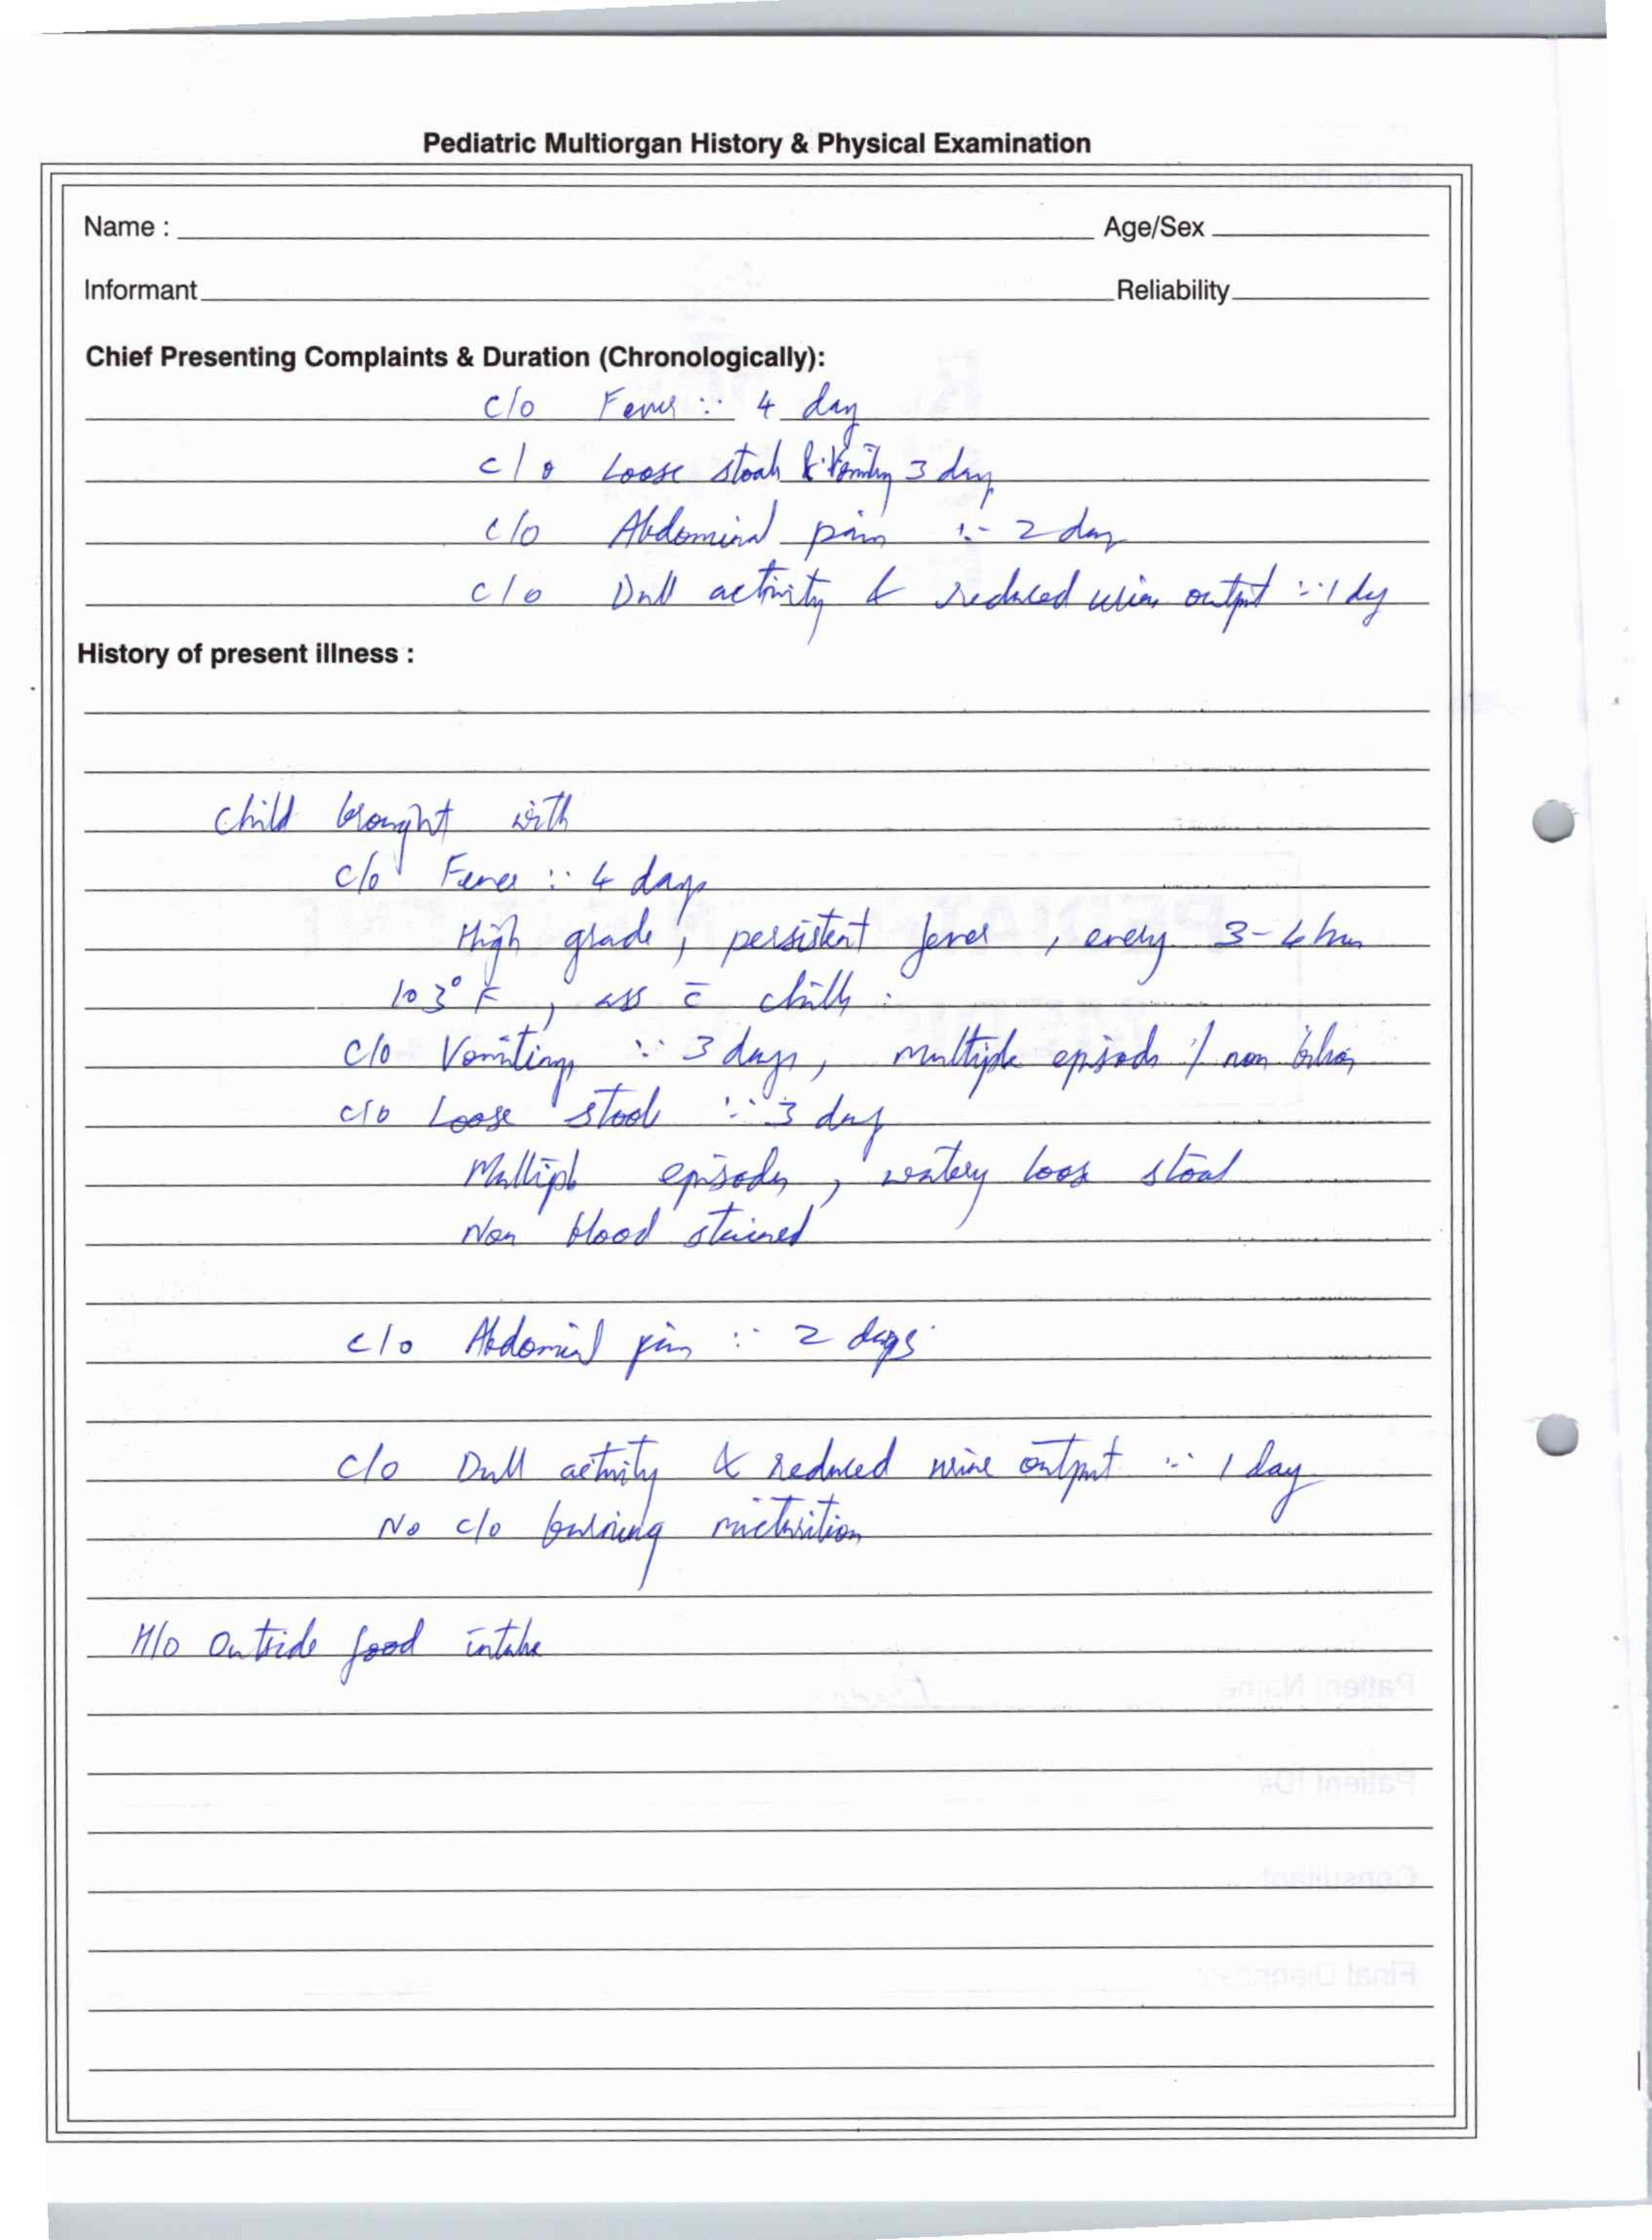 Pediatric Multiorgan History & Physical Examination
Name : Age/Sex
Informant Reliability
Chief Presenting Complaints & Duration (Chronologically):
c/o Fever ∵ 4 day
c/o Loose stools & Vomiting 3 day
c/o Abdominal pain ∵ 2 day
c/o Dull activity & reduced urine output ∵ 1 dy
History of present illness :
child brought with
c/o Fever ∵ 4 days
High grade, persistent fever, every 3-4 hrs
103° F, ass c̄ chills.
c/o Vomiting ∵ 3 days, multiple episods / non bilios
c/o Loose stools ∵ 3 day
Multiple episodes, watery loose stool
Non blood stained
c/o Abdominal pain ∵ 2 days
c/o Dull activity & reduced urine output ∵ 1 day
No c/o burning micturition
H/O Outside food intake